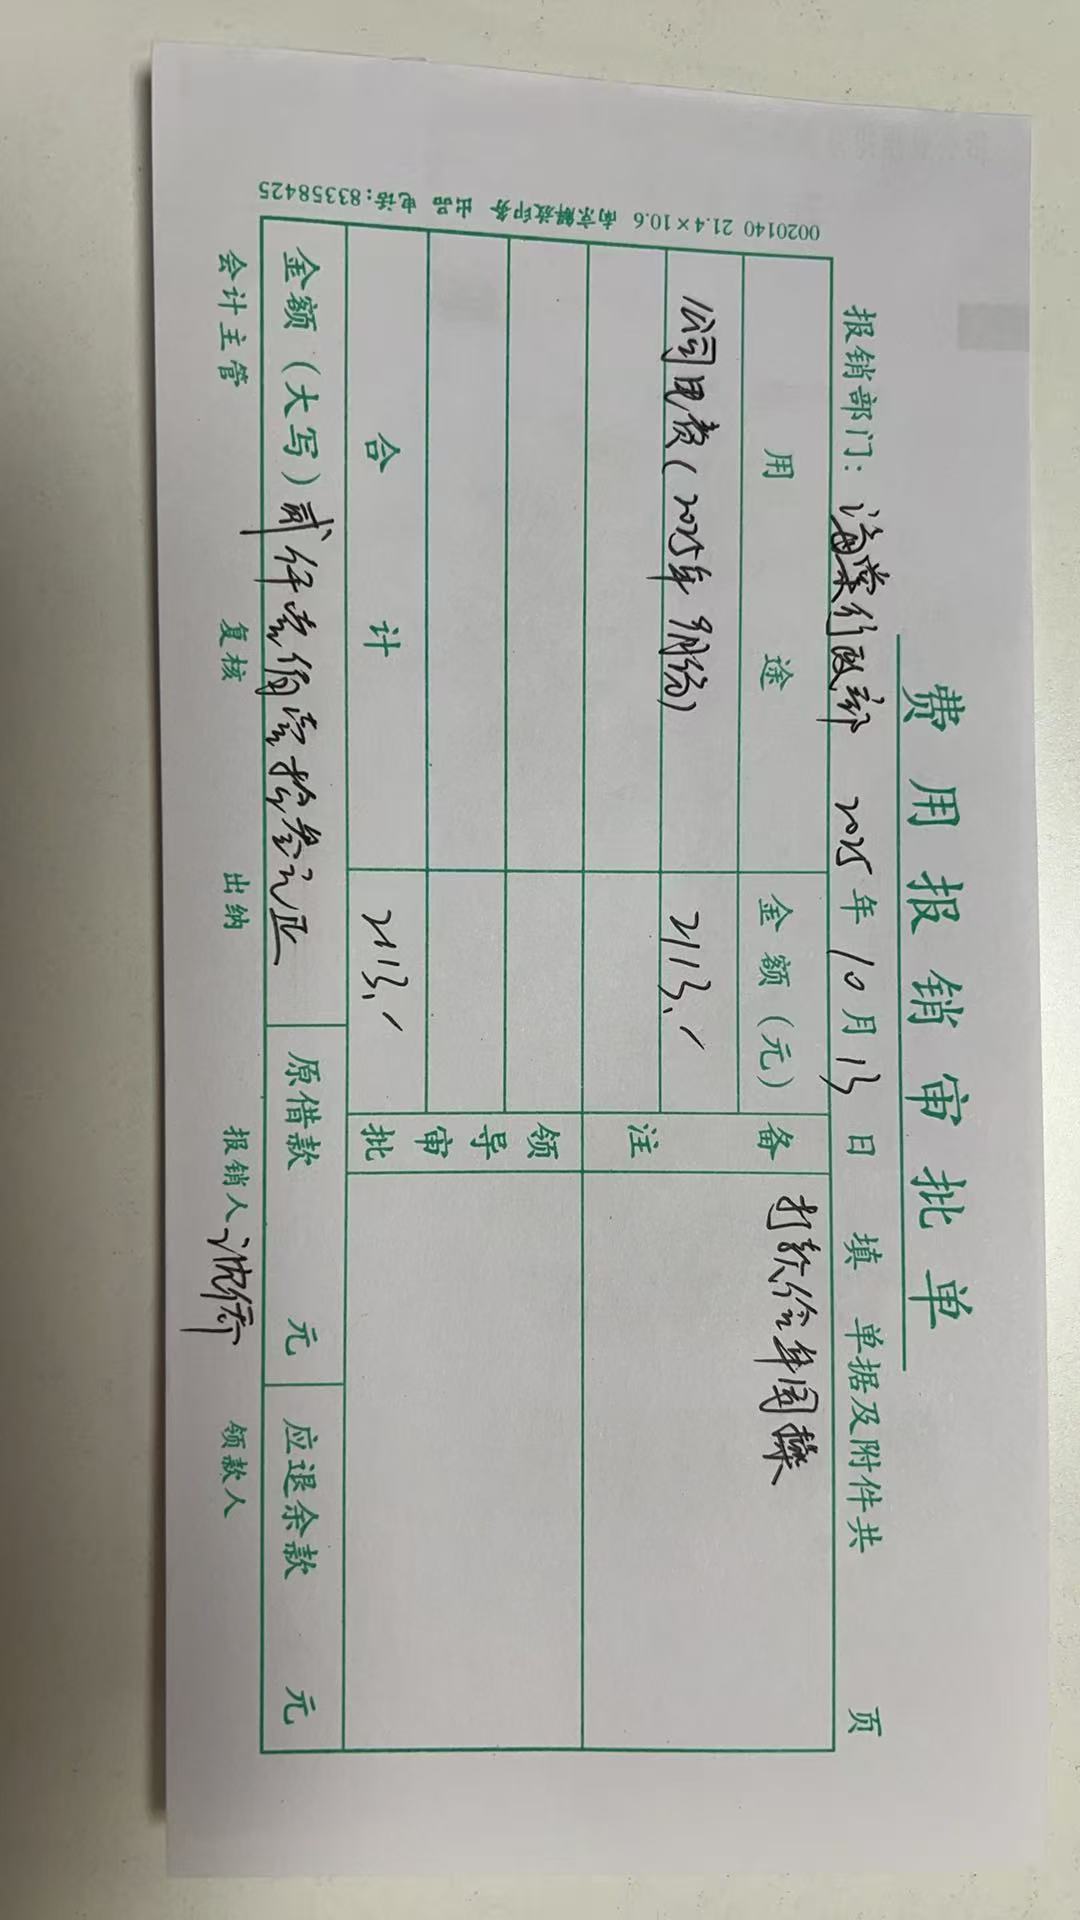 费用报销审批单
报销部门：海棠行政部 2025年10月13日 填 单据及附件共 页
用途 金额(元) 备注 打款给年国樑
公司电费(2025年9月份) 2113.-
领导审批
合计 2113.-
金额(大写)贰仟壹佰壹拾叁元正 原借款 元 应退余款 元
会计主管 复核 出纳 报销人 沈侨 领款人
0020140 21.4×10.6 南京解放印务 出品 电话:83358425